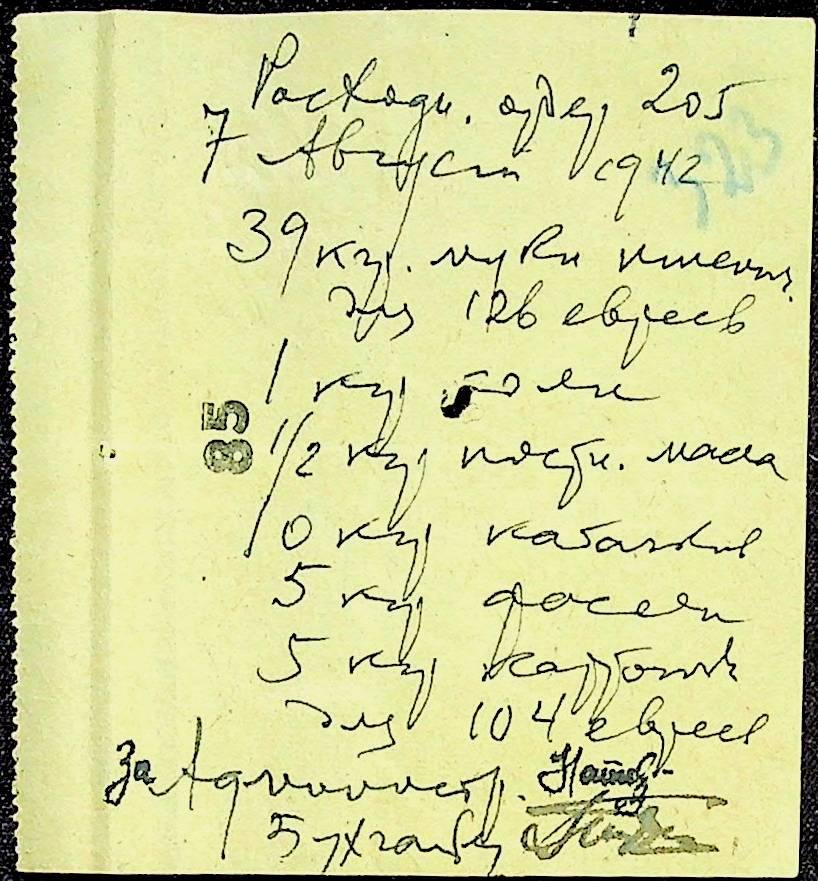 Расходн. ордер 205
7 Август 1942
39 кгр. муки пшенич.
для 126 евреев
1 кгр соли
1/2 кгр постн. масла
10 кгр кабачков
5 кгр фасоли
5 кгр картошк
для 104 евреев
За Администр.
Бухгалтер
85